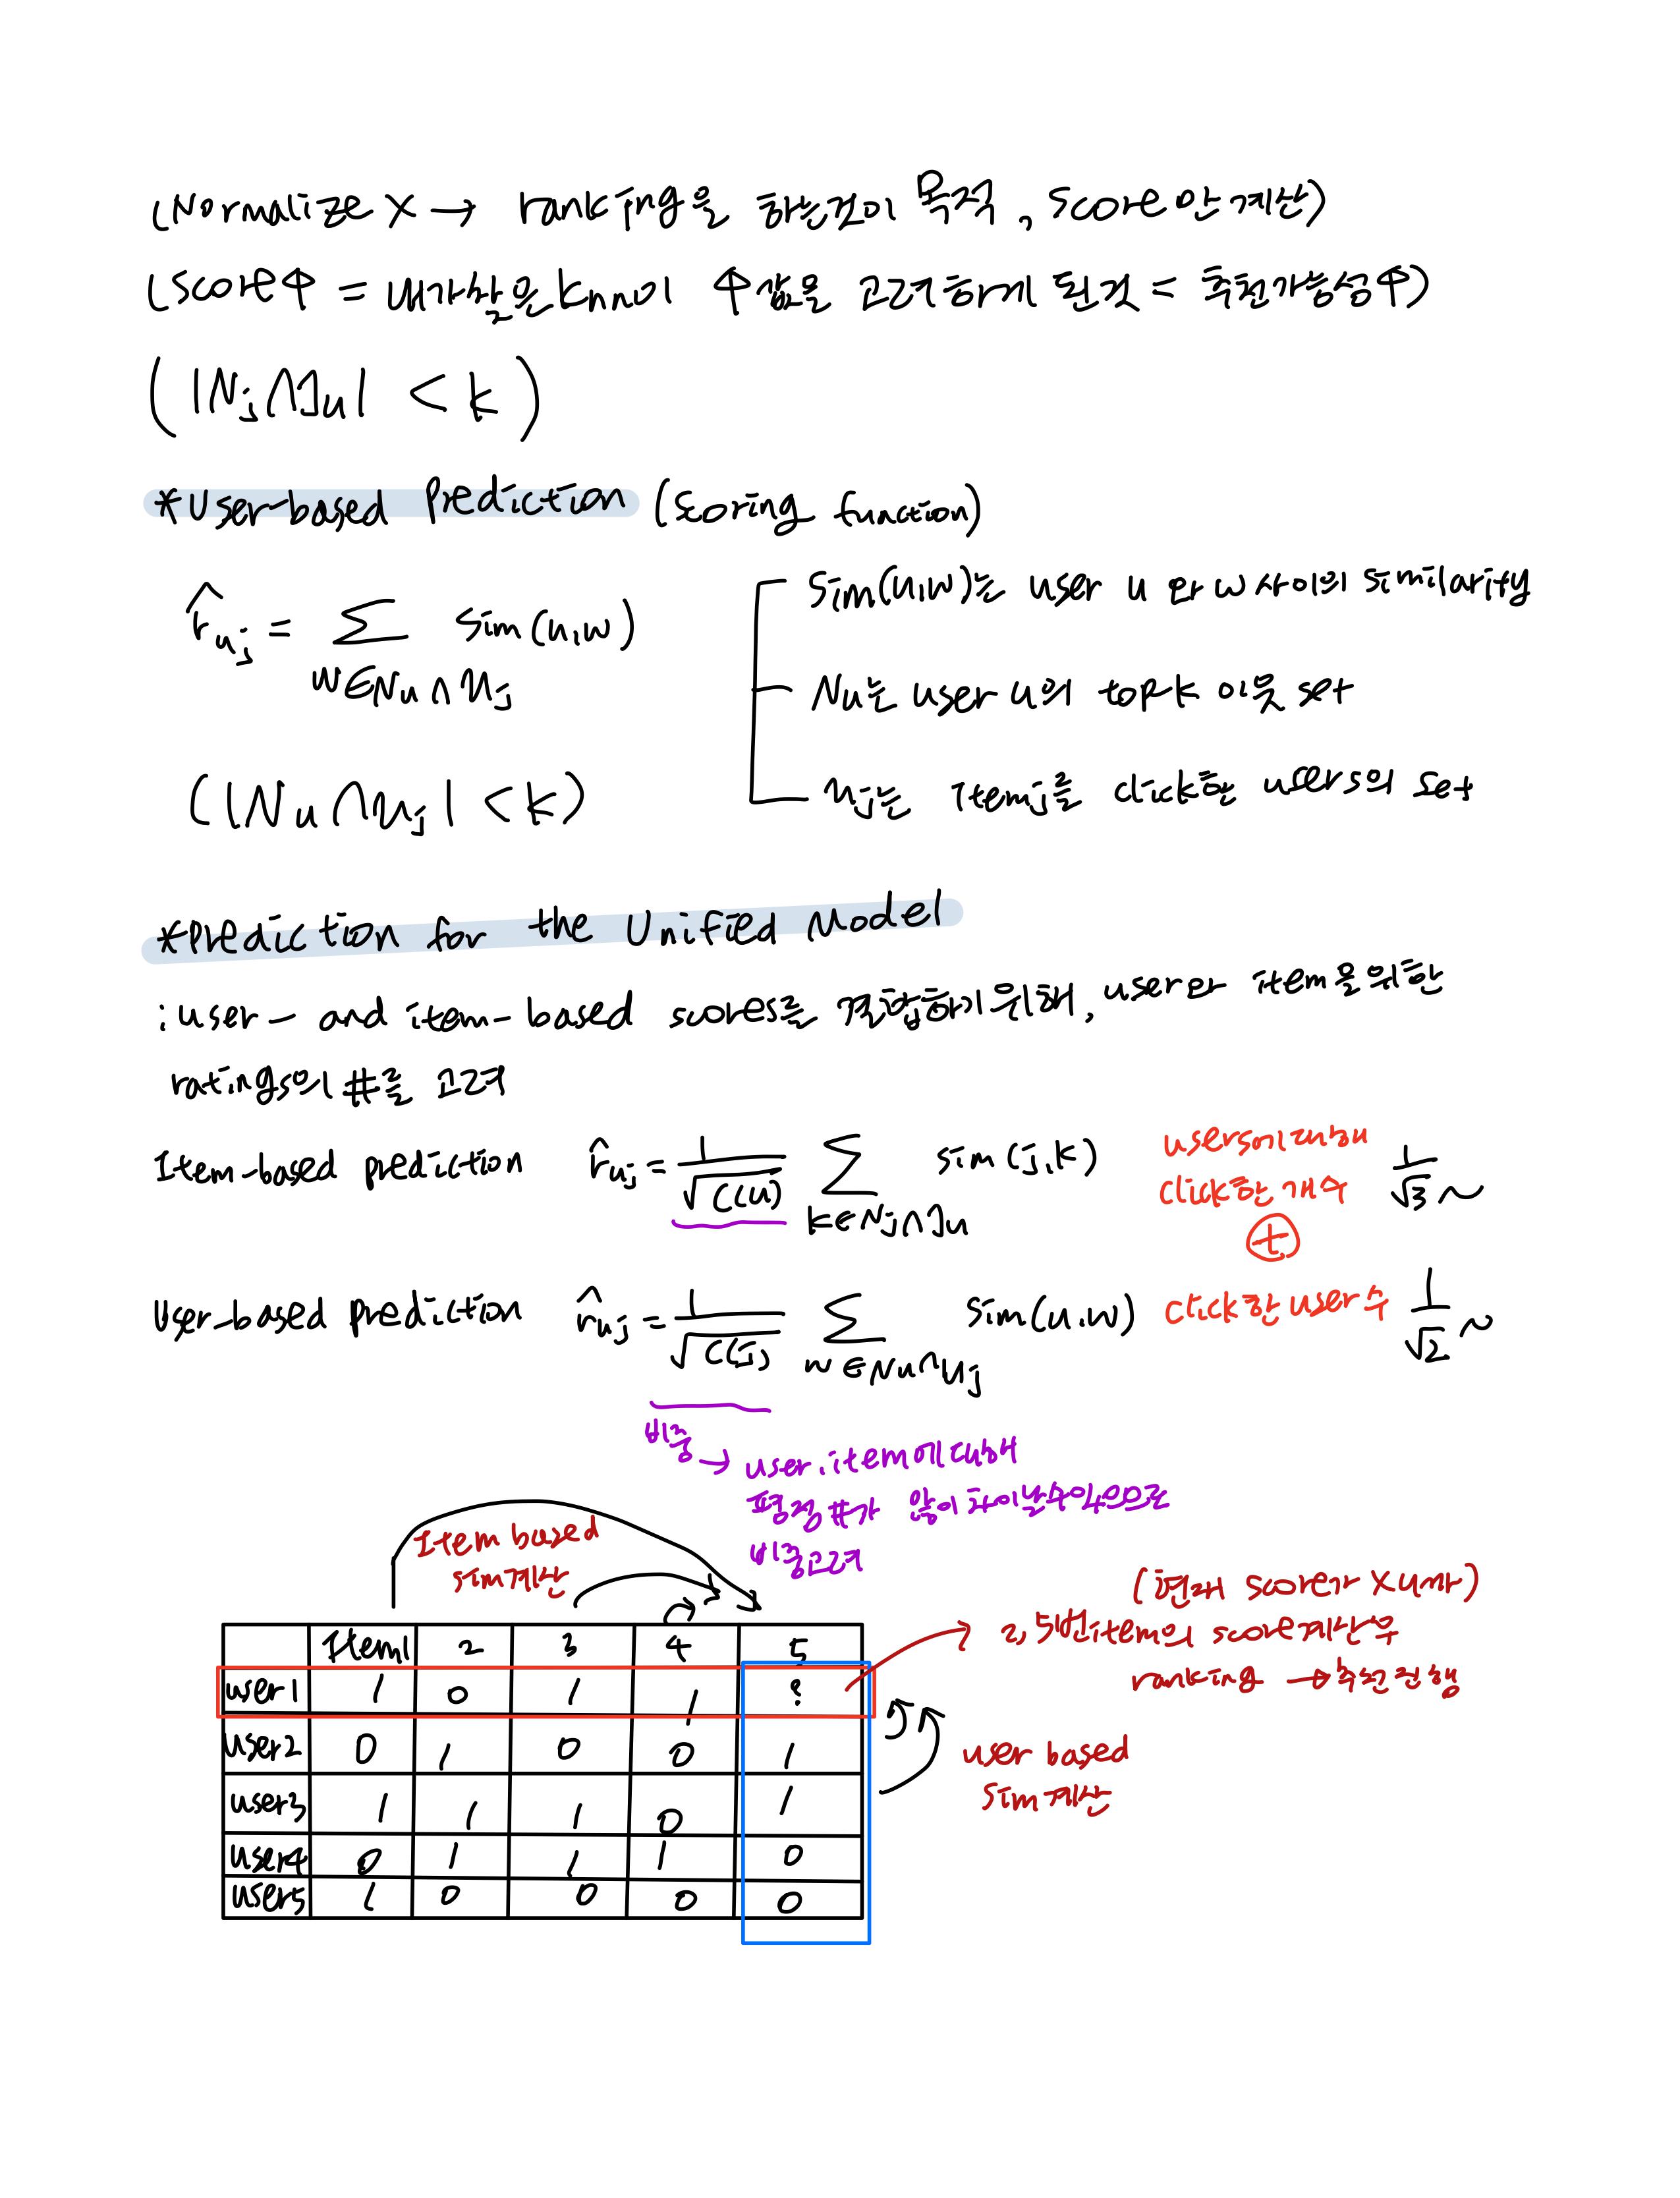 (Normalize X → ranking을 하는것이 목적, score만 계산)
(score↑ = 내가찾은 knn이 ↑값을 고려하게 된것 = 추천가능성↑)
(|Nj∩Ju| < k)
*User-based Prediction (Scoring function)
r̂uj = Σ sim(u,w)
w∈Nu∩Uj
(|Nu∩Uj| < k)
Sim(u,w)는 user u 와 w 사이의 similarity
Nu는 user u의 top-k 이웃 set
Uj는 item j를 click한 users의 set
*Prediction for the Unified Model
: user- and item-based scores를 결합하기위해, user와 item을위한
ratings의 #를 고려
Item-based prediction r̂uj = 1/√C(u) Σ sim(j,k)
k∈Nj∩Ju
users에대해
click한 개수 1/√3 ~
+
User-based prediction r̂uj = 1/√C(j) Σ Sim(u,w) click한 user수 1/√2 ~
w∈Nu∩Uj
비중 → user,item에대해
평점 #가 많이 차이날수있으므로
비중고려
Item based
sim계산
(현재 score가 X u마)
2,5번item의 score계산후
ranking → 추천진행
Item1 2 3 4 5
user1 1 0 1 1 ?
user2 0 1 0 0 1
user3 1 1 1 0 1
user4 0 1 1 1 0
user5 1 0 0 0 0
user based
sim계산